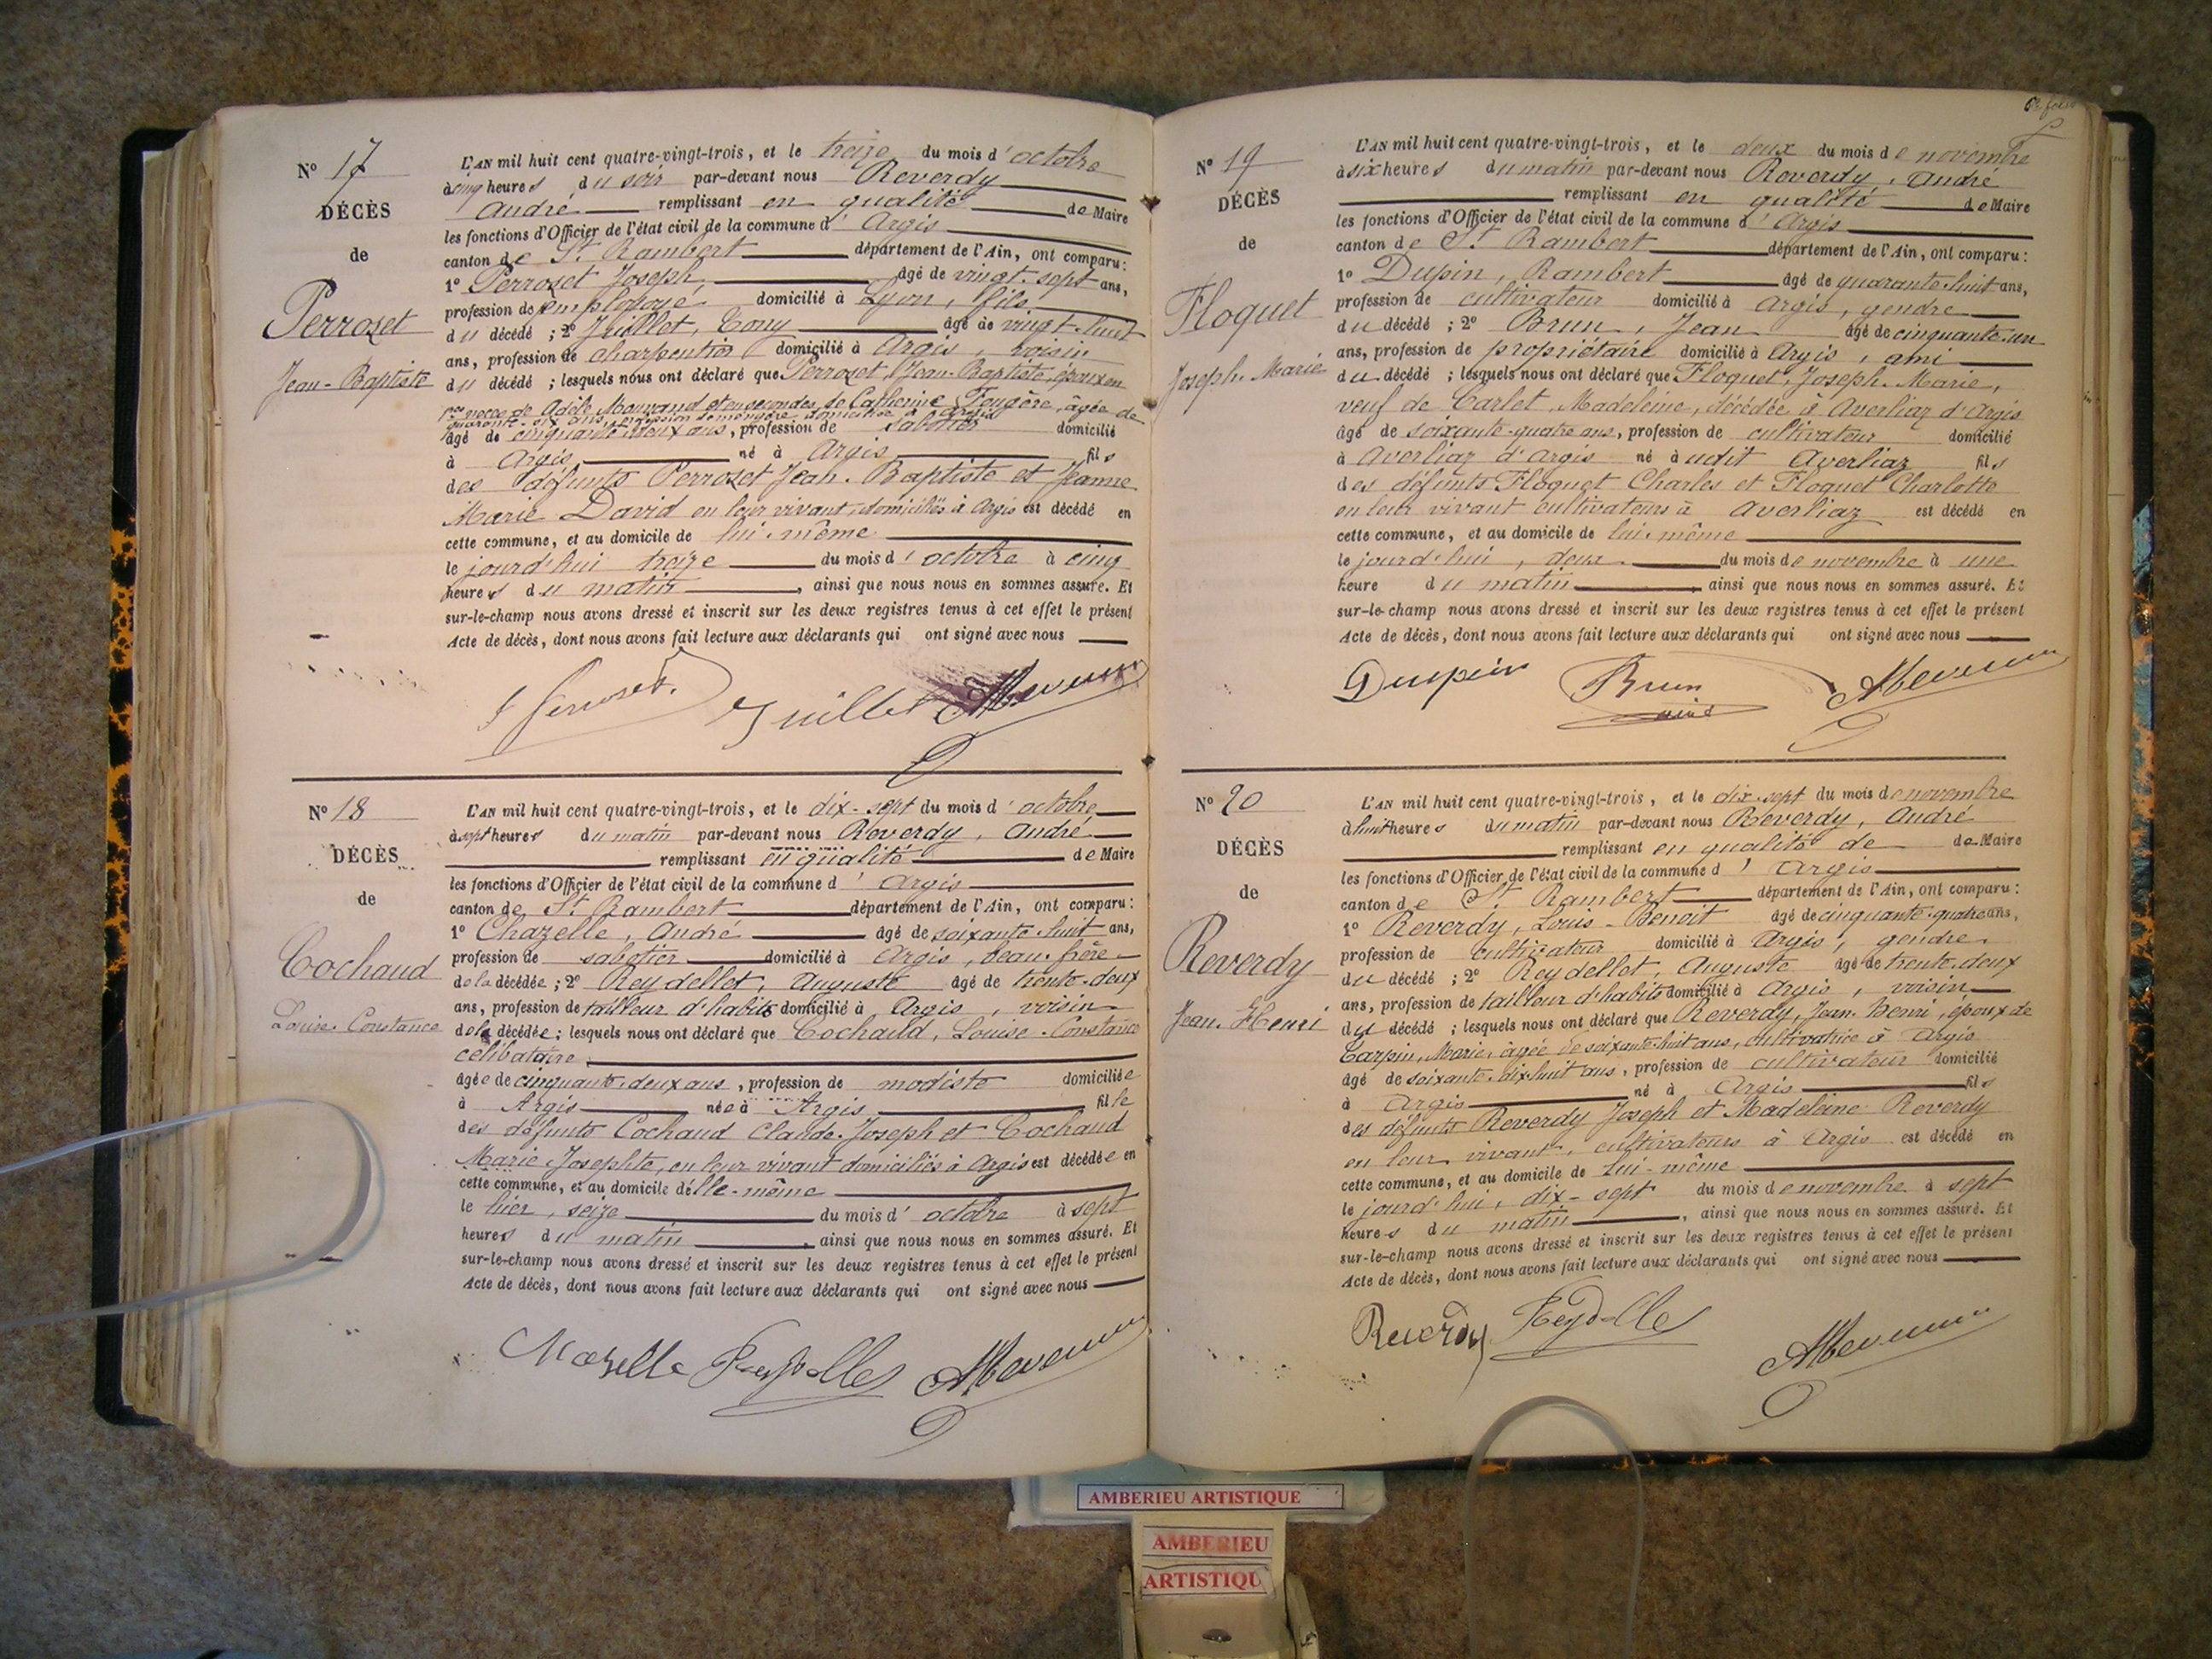 N° 17
DÉCÈS
de
Perrozet
Jean-Baptiste
L'AN mil huit cent quatre-vingt-trois, et le treize du mois d'octobre
à cinq heures du soir par-devant nous Reverdy
André remplissant en qualité de Maire
les fonctions d'Officier de l'état civil de la commune d'Argis
canton de St Rambert département de l'Ain, ont comparu:
1° Perrozet Joseph, âgé de vingt-sept ans,
profession de employé domicilié à Lyon, fils
du décédé; 2° Juillet, Tony âgé de vingt-huit
ans, profession de charpentier domicilié à Argis, voisin
du décédé; lesquels nous ont déclaré que Perrozet, Jean-Baptiste, époux en
1res noces de Adèle et en secondes de Catherine Fougère, âgée de
quarante-six ans, profession ménagère domiciliée à Argis
âgé de cinquante deux ans, profession de sabotier domicilié
à Argis, né à Argis, fils
des défunts Perrozet Jean-Baptiste et Jeanne
Marie David en leur vivant domiciliés à Argis est décédé en
cette commune, et au domicile de lui-même
le jourd'hui treize du mois d'octobre à cinq
heures du matin, ainsi que nous nous en sommes assuré. Et
sur-le-champ nous avons dressé et inscrit sur les deux registres tenus à cet effet le présent
Acte de décès, dont nous avons fait lecture aux déclarants qui ont signé avec nous
J Perrozet. Juillet
N° 18
DÉCÈS
de
Cochaud
Louise Constance
L'AN mil huit cent quatre-vingt-trois, et le dix-sept du mois d'octobre
à sept heures du matin par-devant nous Reverdy, André
remplissant en qualité de Maire
les fonctions d'Officier de l'état civil de la commune d'Argis
canton de St Rambert département de l'Ain, ont comparu:
1° Chazelle, André âgé de soixante-huit ans,
profession de sabotier domicilié à Argis, beau-frère
de la décédée; 2° Reydellet, Auguste âgé de trente-deux
ans, profession de tailleur d'habits domicilié à Argis, voisin
de la décédée; lesquels nous ont déclaré que Cochaud, Louise-Constance
célibataire
âgée de cinquante-deux ans, profession de modiste domiciliée
à Argis née à Argis fille
des défunts Cochaud Claude-Joseph et Cochaud
Marie Josephte, en leur vivant domiciliés à Argis est décédée en
cette commune, et au domicile d'elle-même
le hier, seize du mois d'octobre à sept
heures du matin, ainsi que nous nous en sommes assuré. Et
sur-le-champ nous avons dressé et inscrit sur les deux registres tenus à cet effet le présent
Acte de décès, dont nous avons fait lecture aux déclarants qui ont signé avec nous
Chazelle Reydellet
N° 19
DÉCÈS
de
Floquet
Joseph-Marie
L'AN mil huit cent quatre-vingt-trois, et le deux du mois de novembre
à six heures du matin par-devant nous Reverdy, André
remplissant en qualité de Maire
les fonctions d'Officier de l'état civil de la commune d'Argis
canton de St Rambert département de l'Ain, ont comparu:
1° Dupin, Rambert âgé de quarante-huit ans,
profession de cultivateur domicilié à Argis, gendre
du décédé; 2° Brun, Jean âgé de cinquante-un
ans, profession de propriétaire domicilié à Argis, ami
du décédé; lesquels nous ont déclaré que Floquet, Joseph-Marie,
veuf de Carlet, Madeleine, décédée à Averliaz d'Argis
âgé de soixante-quatre ans, profession de cultivateur domicilié
à Averliaz d'Argis né à udit Averliaz fils
des défunts Floquet Charles et Floquet Charlotte
en leur vivant cultivateurs à Averliaz est décédé en
cette commune, et au domicile de lui-même
le jourd'hui, deux du mois de novembre à une
heure du matin, ainsi que nous nous en sommes assuré. Et
sur-le-champ nous avons dressé et inscrit sur les deux registres tenus à cet effet le présent
Acte de décès, dont nous avons fait lecture aux déclarants qui ont signé avec nous
Dupin Brun
N° 20
DÉCÈS
de
Reverdy
Jean-Henri
L'AN mil huit cent quatre-vingt-trois, et le dix-sept du mois de novembre
à huit heures du matin par-devant nous Reverdy, André
remplissant en qualité de de Maire
les fonctions d'Officier de l'état civil de la commune d'Argis
canton de St Rambert département de l'Ain, ont comparu:
1° Reverdy, Louis-Benoit âgé de cinquante-quatre ans,
profession de cultivateur domicilié à Argis, gendre
du décédé; 2° Reydellet, Auguste âgé de trente-deux
ans, profession de tailleur d'habits domicilié à Argis, voisin
du décédé; lesquels nous ont déclaré que Reverdy, Jean-Henri, époux de
Carpin, Marie, âgée de soixante-huit ans, cultivatrice à Argis
âgé de soixante-dix-huit ans, profession de cultivateur domicilié
à Argis né à Argis fils
des défunts Reverdy Joseph et Madeleine Reverdy
en leur vivant, cultivateurs à Argis est décédé en
cette commune, et au domicile de lui-même
le jourd'hui, dix-sept du mois de novembre à sept
heures du matin, ainsi que nous nous en sommes assuré. Et
sur-le-champ nous avons dressé et inscrit sur les deux registres tenus à cet effet le présent
Acte de décès, dont nous avons fait lecture aux déclarants qui ont signé avec nous
Reverdy Reydellet
AMBERIEU ARTISTIQUE
AMBERIEU
ARTISTIQU